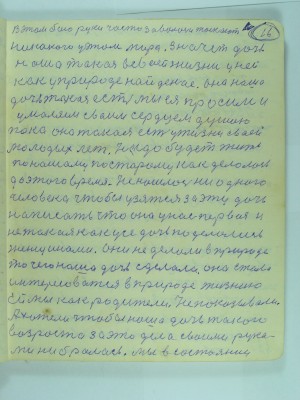 В этом бою руки часто за волосы тыкают 26
никакого у том мира. Значет дочь
наша такая в своей жизни у ней
как у природе найденая. Она наша
дочь такая есть мы ея просим и
умоляем своим сердцем душою
пока она такая есть у жизни своей
молодых лет. Надо будет жить
по нашому по старому как делалось
до этого время. Не нашлось ни одного
человека чтобы узятся за эту дочь
написать что она у нас первая и
не такая как усе дочь поделались
женщинами. Они не делали в природе
то чего наша дочь сделала, она стала
интересоватся в природе жизнию
Ей мы как родители. Не показывали.
А хотели чтобы наша дочь такого
возроста за это дело своими рука-
ми ни бралась. Мы в состоянии